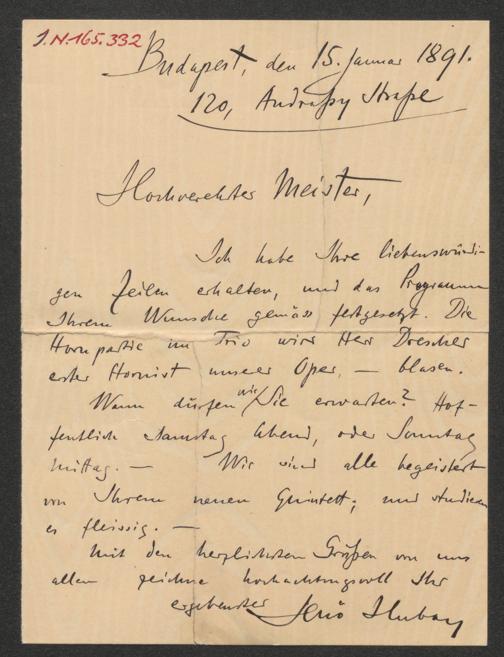 I.N.165.332
Budapest, den 15. Januar 1891.
120, Andraſsy Straſse
Hochverehrter Meister,
Ich habe Ihre liebenswürdi-
gen Zeilen erhalten, und das Programm
Ihrem Wunsche gemäss festgesetzt. Die
Hornpartie im Trio wird Herr Drescher
erster Hornist unserer Oper, — blasen.
Wann dürfen wir Sie erwarten? Hof-
fentlich Samstag Abend, oder Sonntag
Mittag. — Wir sind alle begeistert
von Ihrem neuen Quintett; und studieren
es fleissig. —
Mit den herzlichsten Grüßen von uns
allen zeichne hochachtungsvoll Ihr
ergebenster Jenő Hubay